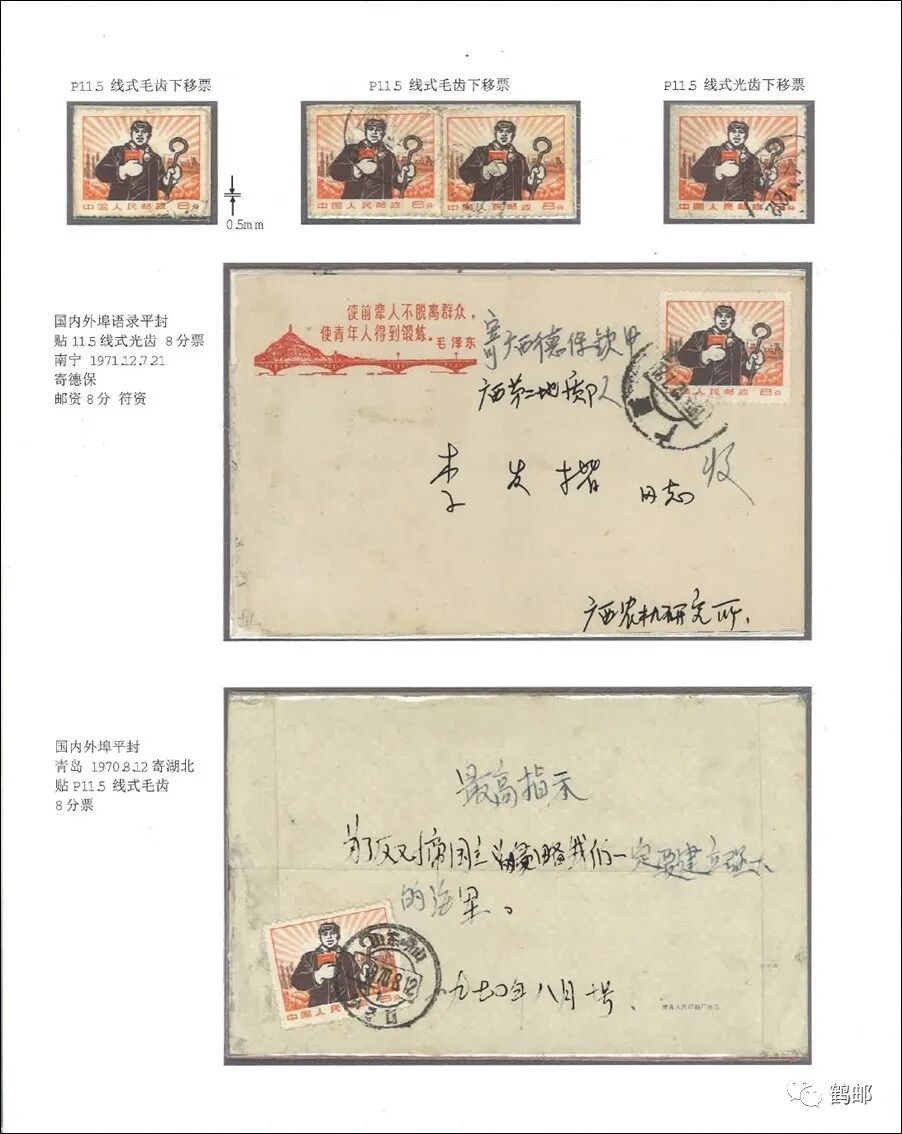 P11.5 线式毛齿下移票
P11.5 线式毛齿下移票
P11.5 线式光齿下移票
中国人民邮政 8分
中国人民邮政 8分
中国人民邮政 8分
中国人民邮政 8分
0.5mm
国内外埠语录平封
贴 11.5 线式光齿 8分票
南宁 1971.12.7.21
寄德保
邮资 8分 符资
使前辈人不脱离群众，
使青年人得到锻炼。毛泽东
寄广西德保钦甲
广西第二地质队
中国人民邮政 8分
李发 同志 收
广西农机研究所.
国内外埠平封
青岛 1970.8.12 寄湖北
贴 P11.5 线式毛齿
8分票
最高指示
为了反对帝国主义侵略我们一定要建立强大
的海军。
一九七〇年八月十号.
中国人民 8分
山东
70.8.12
青岛人民印刷厂出品
鹤邮